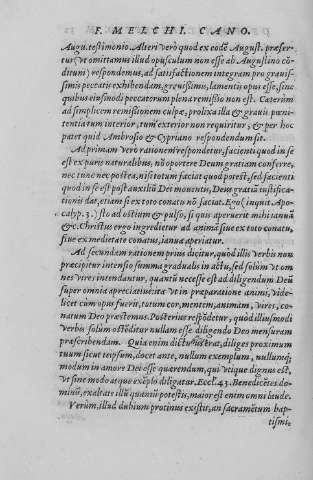 F. MELCHI. CANO.
Augu. testimonio. Alteri verò quod ex eodē August. præfer-
tur, (vt omittamus illud opusculum non esse ab Augustino cō-
ditum) respondemus, ad satisfactionem integram pro grauis-
simis peccatis exhibendam, grauissimis, lamentis opus esse, sine
quibus eiusmodi peccatorum plena remissio non est. Cæterùm
ad simplicem remissionem culpæ, prolixa illa & grauis pœni-
tentia tum interior, tum exterior non requiritur, & per hoc
patet quid Ambrosio & Cypriano respondendum sit.
Ad primam verò rationem respondetur, facienti quod in se
est ex puris naturalibus, nō oportere Deum gratiam conferre,
nec tunc nec postea, nisi totum faciat quod potest, sed facienti
quod in se est post auxiliū Dei mouentis, Deus gratiā iustifica-
tionis dat, etiam si ex toto conatu nō faciat. Ego (inquit Apo-
calyp. 3.) sto ad ostium & pulso, si quis aperuerit mihi ianuā
&c. Christus ergo ingredietur ad animā siue ex toto conatu,
siue ex medietate conatus, ianua aperiatur.
Ad secundam rationem prius dicitur, quòd illis verbis non
præcipitur intensio summa gradualis in actu, sed solùm vt om
nes vires intendantur, quantū necesse est ad diligendum Deū
super omnia apreciatiuè: & vt in præparatione animi, vide-
licet cùm opus fuerit, totum cor, mentem, animam, vires, co-
natum Deo præstemus. Posterius respōdetur, quòd illiusmodi
verbis solùm ostēditur nullam esse diligendo Deo mensuram
præscribendam. Quia enim dictū erat, diliges proximum
tuum sicut teipsum, docet ante, nullum exemplum, nullumq́;
modum in amore Dei esse quærendum, qui vtique dignus est,
vt sine modo atque exēplo diligatur. Eccl. 43. Benedicētes do-
minū, exaltate illū quantū potestis, maior est enim omni laude.
Verùm, illud dubium protinus existit, an sacramētum bap-
tismi,